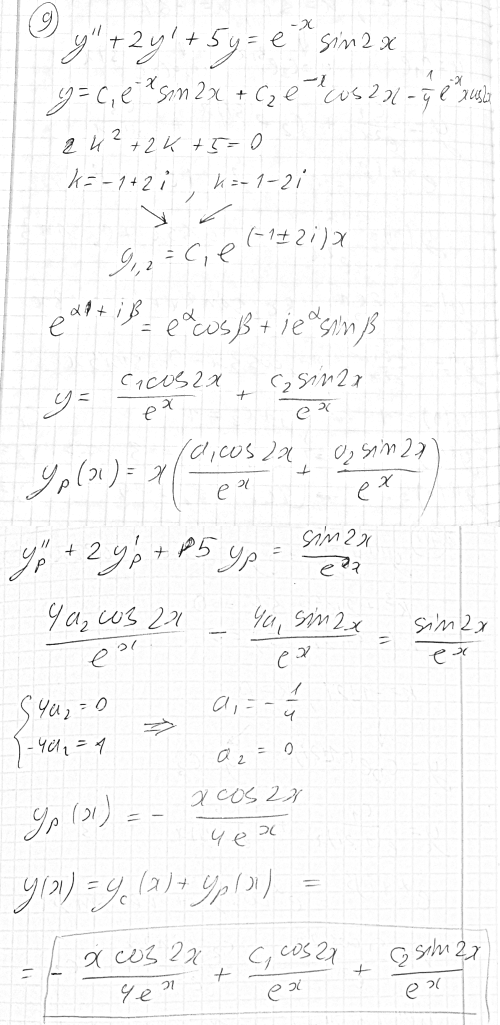 9
y'' + 2y' + 5y = e^{-x} sin2x
y = c_1 e^{-x} sin2x + c_2 e^{-x} cos2x - \frac{1}{4} e^{-x} x cos2x
k^2 + 2k + 5 = 0
k = -1 + 2i , k = -1 - 2i
y_{1,2} = c_1 e^{(-1 ± 2i)x}
e^{α + iβ} = e^α cosβ + ie^α sinβ
y = \frac{c_1 cos2x}{e^x} + \frac{c_2 sin2x}{e^x}
y_p(x) = x ( \frac{a_1 cos2x}{e^x} + \frac{a_2 sin2x}{e^x} )
y_p'' + 2y_p' + 5y_p = \frac{sin2x}{e^x}
\frac{4a_2 cos2x}{e^x} - \frac{4a_1 sin2x}{e^x} = \frac{sin2x}{e^x}
{ 4a_2 = 0 ⇒ a_1 = -\frac{1}{4}
-4a_1 = 1 a_2 = 0
y_p(x) = - \frac{x cos2x}{4e^x}
y(x) = y_c(x) + y_p(x) =
= - \frac{x cos2x}{4e^x} + \frac{c_1 cos2x}{e^x} + \frac{c_2 sin2x}{e^x}